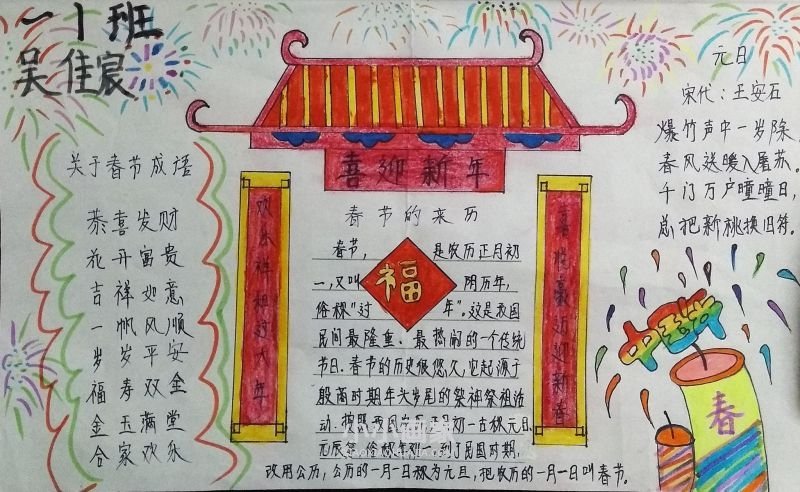 一1班
吴佳宸
关于春节成语
恭喜发财
花开富贵
吉祥如意
一帆风顺
岁岁平安
福寿双全
金玉满堂
合家欢乐
喜迎新年
欢乐祥和过大年
春节的来历
春节, 是农历正月初
一,又叫 阴历年,
俗称"过 年",这是我国
民间最隆重、最热闹的一个传统
节日.春节的历史很悠久,它起源于
殷商时期年头岁尾的祭神祭祖活
动.按照 初一古称元日
元辰 到了民国时期,
改用公历,公历的一月一日称为元旦,把农历的一月一日叫春节。
福
迎新春
元日
宋代:王安石
爆竹声中一岁除,
春风送暖入屠苏。
千门万户曈曈日,
总把新桃换旧符。
春